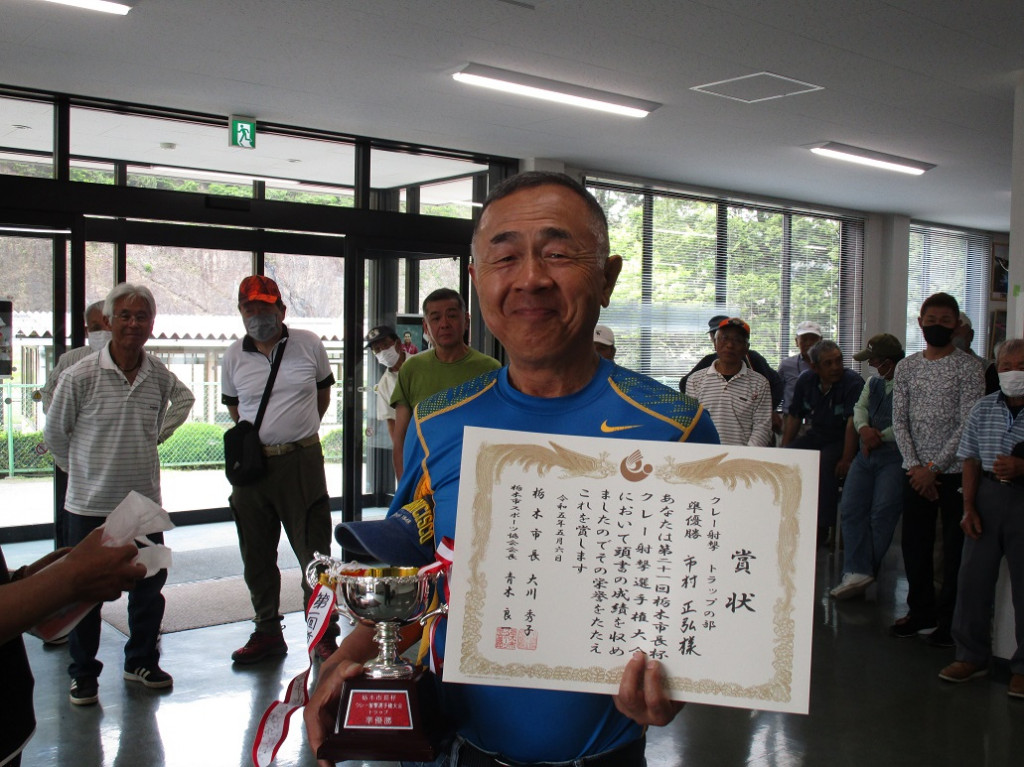 賞状
クレー射撃 トラップの部
準優勝 市村 正弘様
あなたは第二十一回栃木市長杯
クレー射撃選手権大会
において頭書の成績を収め
ましたのでその栄誉をたたえ
これを賞します
令和五年五月六日
栃木市長 大川 秀子
栃木市スポーツ協会会長 青木 良一
栃木市長杯
クレー射撃選手権大会
トラップ
準優勝